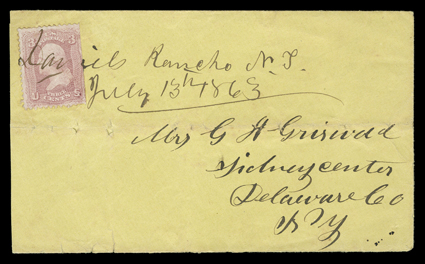 Daniels Rancho N.T.
July 13th 1863
Mrs G H Griswold
Sidney center
Delaware Co
N Y
3 3
U CENTS S